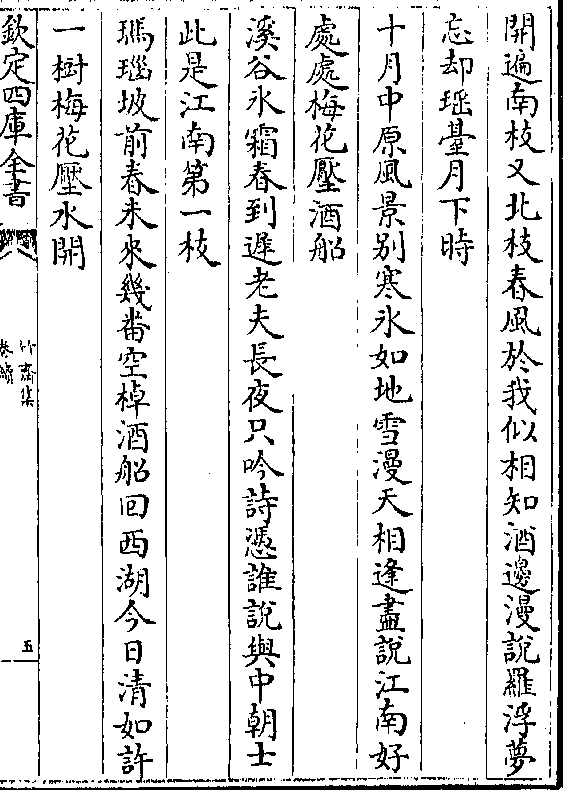 開遍南枝又北枝春風於我似相知酒邊漫說羅浮夢
忘却瑶臺月下時
十月中原風景别寒氷如地雪漫天相逢盡說江南好
處處梅花壓酒船
溪谷氷霜春到遲老夫長夜只吟詩憑誰說與中朝士
此是江南第一枝
瑪瑙坡前春未來幾番空棹酒船回西湖今日清如許
一樹梅花壓水開
欽定四庫全書
竹齋集
卷續
五